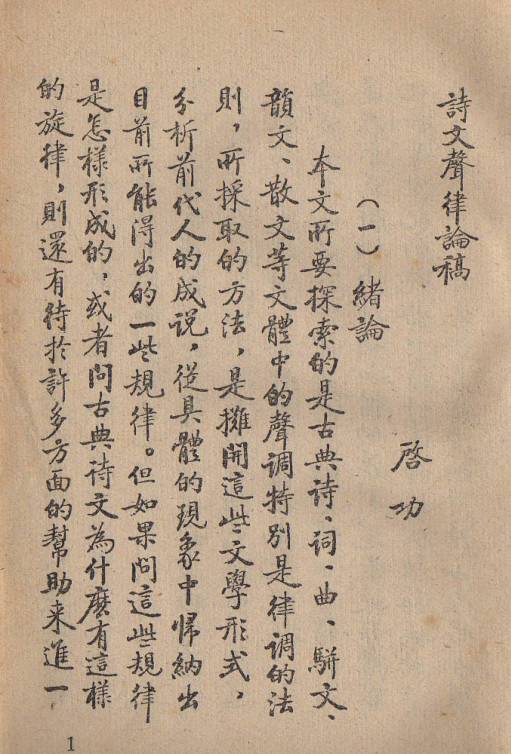 詩文聲律論稿
啓功
（一）緒論
本文所要探索的是古典詩、詞、曲、駢文、
韻文、散文等文體中的聲調特別是律調的法
則，所採取的方法，是攤開這些文學形式，
分析前代人的成說，從具體的現象中歸納出
目前所能得出的一些規律。但如果問這些規律
是怎樣形成的，或者問古典詩文為什麽有這樣
的旋律，則還有待於許多方面的幫助来進一
1